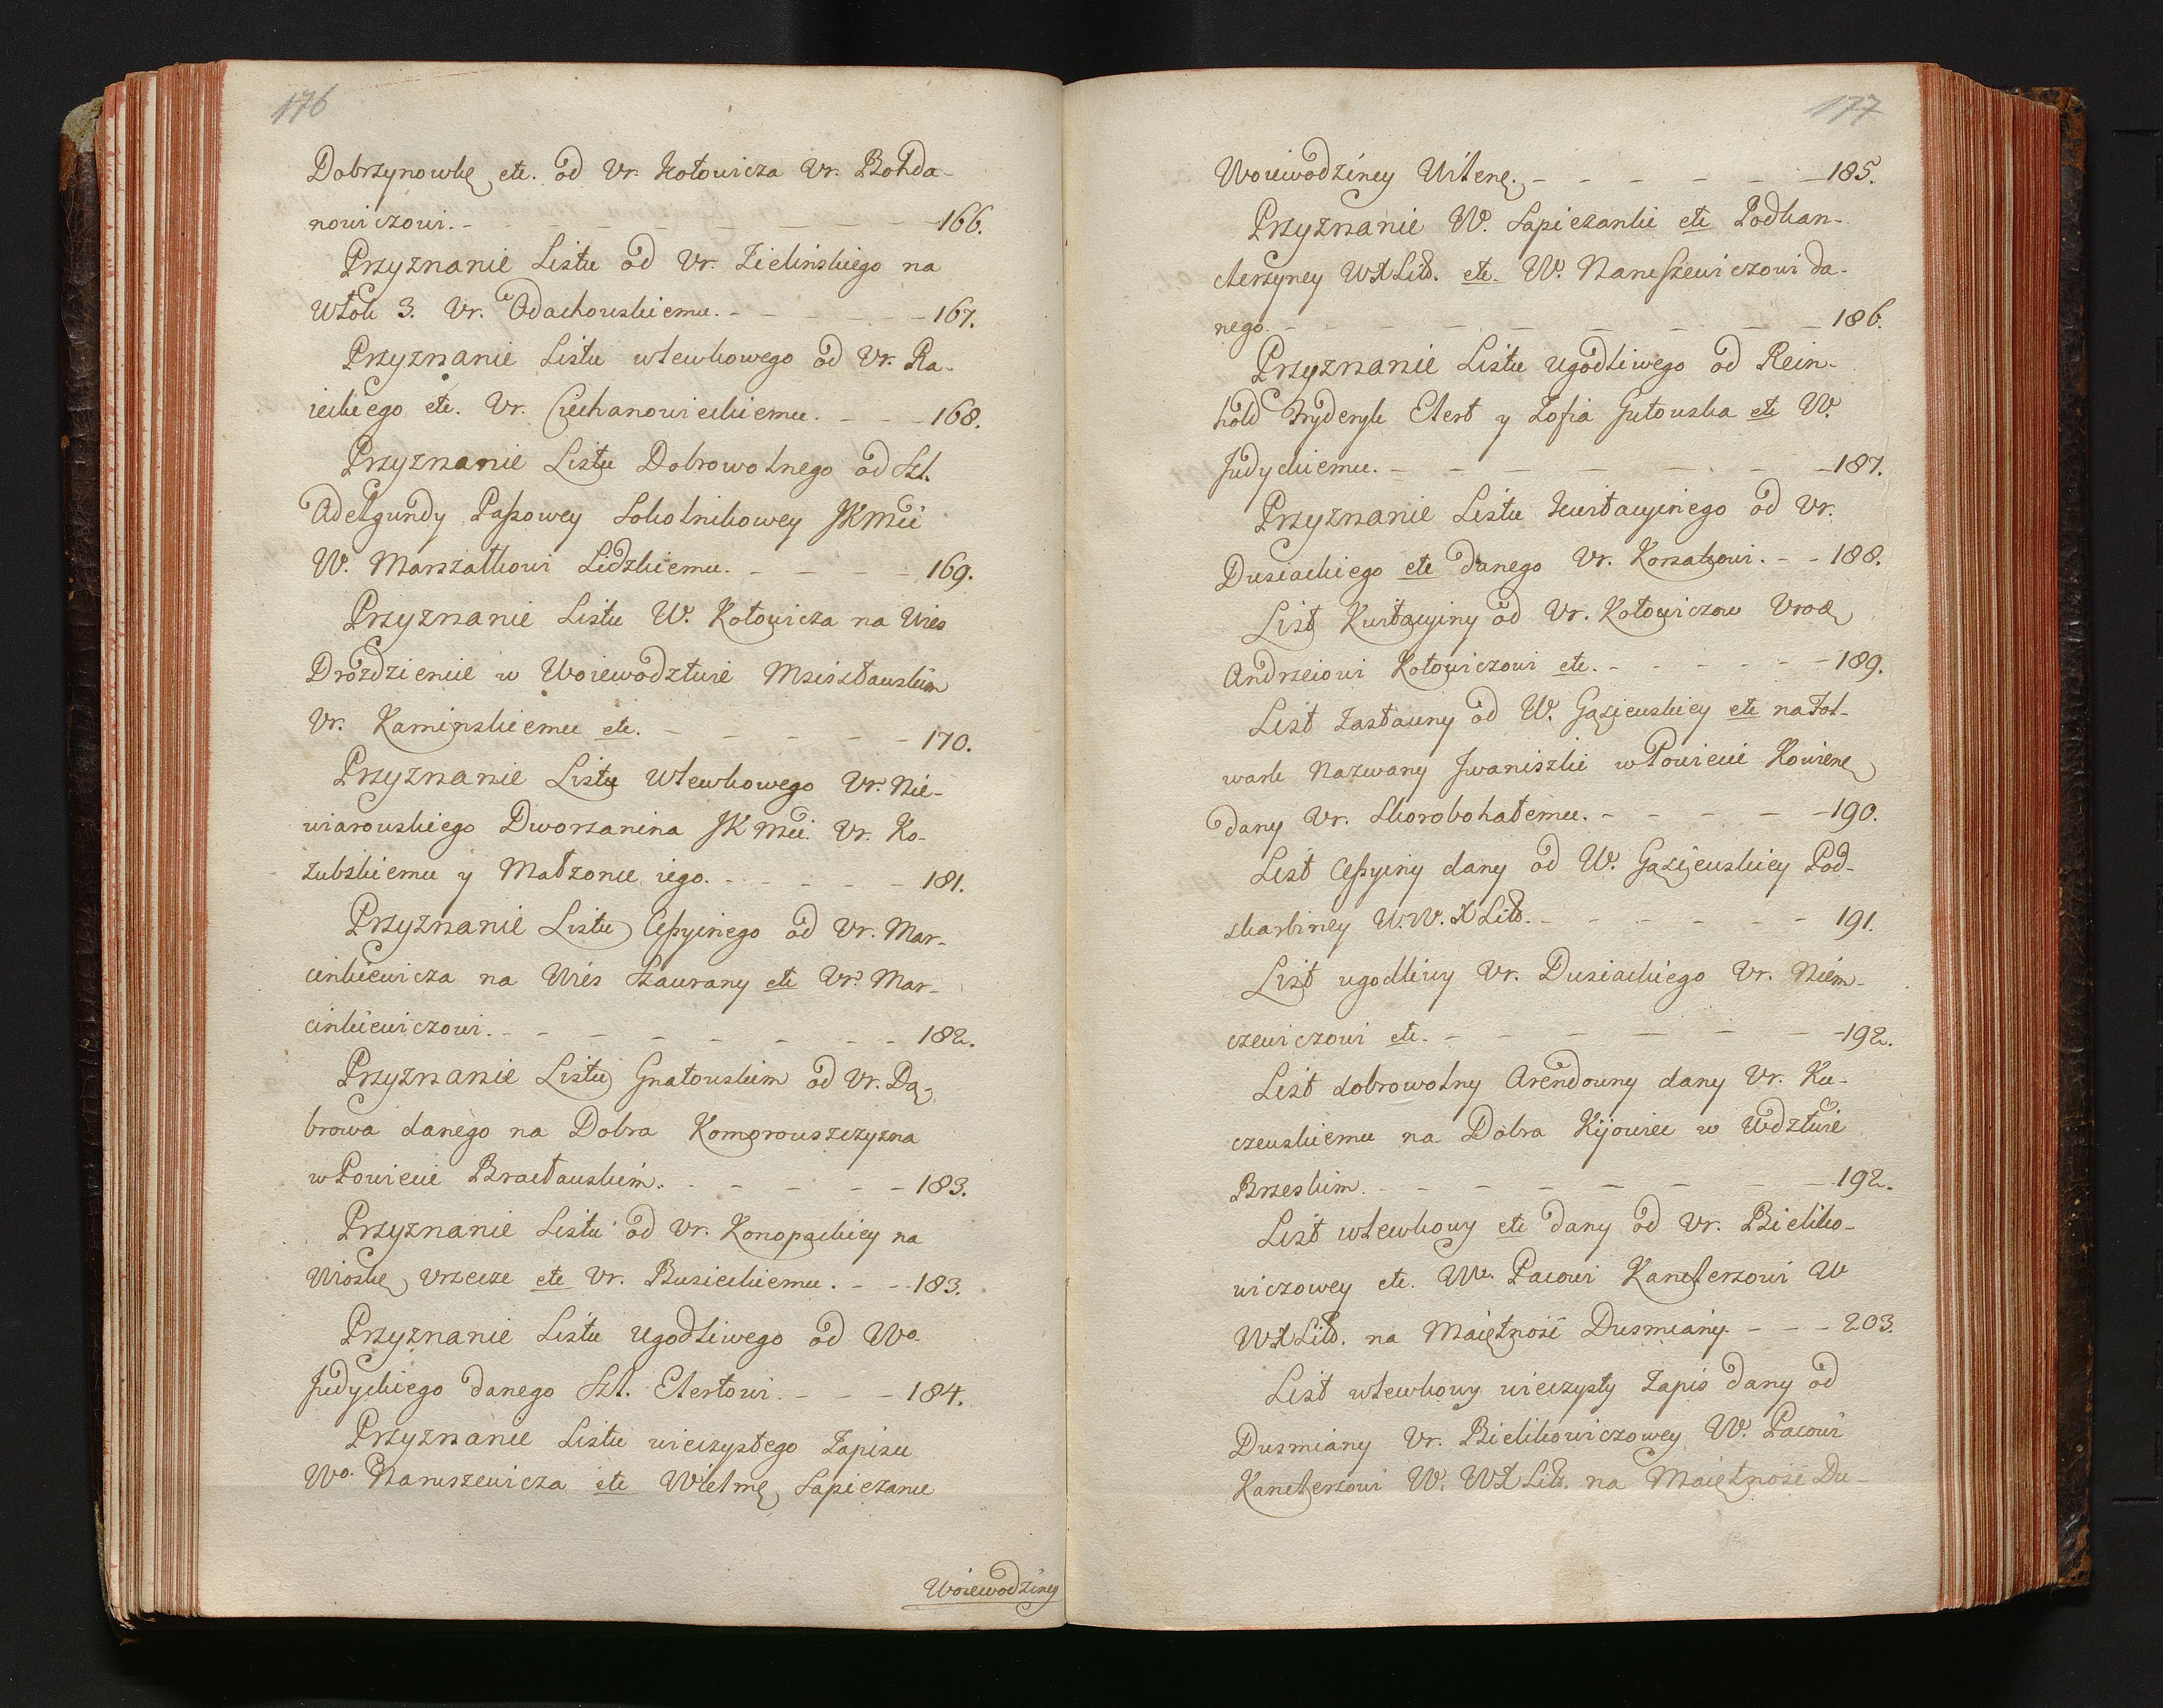 176
Dobrzynowkę etc. od Ur. Kotowicza Ur. Bohda-
nowiczowi. - - - - - - - 166.
Przyznanie Listu od Ur. Zielinskiego na
Włok 3. Ur. Odachowskiemu. - - - - - 167.
Przyznanie Listu wlewkowego od Ur. Ra-
ieckiego etc. Ur. Ciechanowieckiemu. - - - 168.
Przyznanie Listu Dobrowolnego od Szl.
Adelgundy Paszowey Sokolnikowey JKMci
W. Marszałkowi Lidzkiemu. - - - - 169.
Przyznanie Listu W. Kotowicza na Wies
Drozdziencie w Woiewodztwie Mscisławskim
Ur. Kaminskiemu etc. - - - - - 170.
Przyznanie Listu Wlewkowego Ur. Nie-
wiarowskiego Dworzanina JKMci. Ur. Ko-
zubskiemu y Małzonce iego. - - - - - 181.
Przyznanie Listu Cessyinego od Ur. Mar-
cinkiewicza na Wies Szaurany etc Ur. Mar-
cinkiewiczowi. - - - - - - - 182.
Przyznanie Listu Gnatowskim od Ur. Dą-
browa danego na Dobra Komorowszczyzna
w Powiecie Bracławskim. - - - - - 183.
Przyznanie Listu od Ur. Konopackiey na
Wioskę Urzecze etc Ur. Busieckiemu. - - - 183.
Przyznanie Listu Ugodliwego od Wo
Judyckiego danego Szl. Elertowi. - - - 184.
Przyznanie Listu wieczystego Zapisu
Wo. Naruszewicza etc Wielmę Sapiezance
Woiewodziney
177
Woiewodziney Witenę. - - - - - - - 185.
Przyznanie W. Sapiezanki etc Podkan-
clerzyney WXLit. etc. W. Naruszewiczowi da-
nego. - - - - - - - - 186.
Przyznanie Listu ugodliwego od Rein-
hold Fryderyk Elert y Zofia Gutowska etc W.
Judyckiemu. - - - - - - - 187.
Przyznanie Listu kwitacyinego od Ur.
Dusiackiego etc danego Ur. Korsakowi. - - 188.
List Kwitacyiny od Ur. Kotowiczow Urodę
Andrzeiowi Kotowiczowi etc. - - - - - - 189.
List Zastawny od W. Gąsiewskiey etc na Fol-
wark Nazwany Jwaniszki w Powiecie Kowienę
dany Ur. Skorobohatemu. - - - - - 190.
List Cessyiny dany od W. Gąsiewskiey Pod-
skarbiney W.W.XLit. - - - - - - 191.
List ugodliwy Ur. Dusiackiego Ur. Niem-
czewiczowi etc. - - - - - - 192.
List dobrowolny Arendowny dany Ur. Ku-
czewskiemu na Dobra Kijowiec w Wdztwie
Brzeskim. - - - - - - - - 192.
List wlewkowy etc dany od Ur. Bieliko-
wiczowey etc. We. Pacowi Kanclerzowi W
WXLit. na Maiętność Dusmiany. - - - 203.
List wlewkowy wieczysty Zapis dany od
Dusmiany Ur. Bielikowiczowey W. Pacowi
Kanclerzowi W. WXLit. na Maiętność Du-